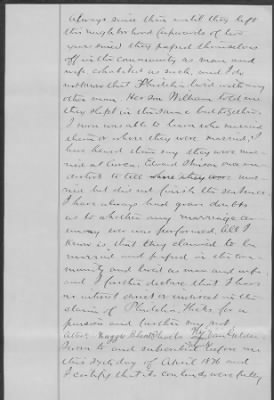 always since then until they left
this neighborhood upwards of two
years since they passed themselves
off in the community as man and
wife cohabited as such, and I do
not know that Pheletha lived with any
other man. Her son William told me
they slept in the same bed together.
I was unable to learn who married
them or where they were married, I
have heard them say they were mar
ried at Edward
started to tell where they were mar
ried but did not finish the sentence.
I have always had grave doubts
as to whether any marriage cer
emony was performed. All I
know is, that they claimed to be
married and passed in the com
munity and lived as man and wife
and I further declare that I have
no interest direct or indirect in the
claim of Hicks for a
pension and further say not
Attest
Sworn to and subscribed before me
this day of April 1876 and
I certify that the contents were fully